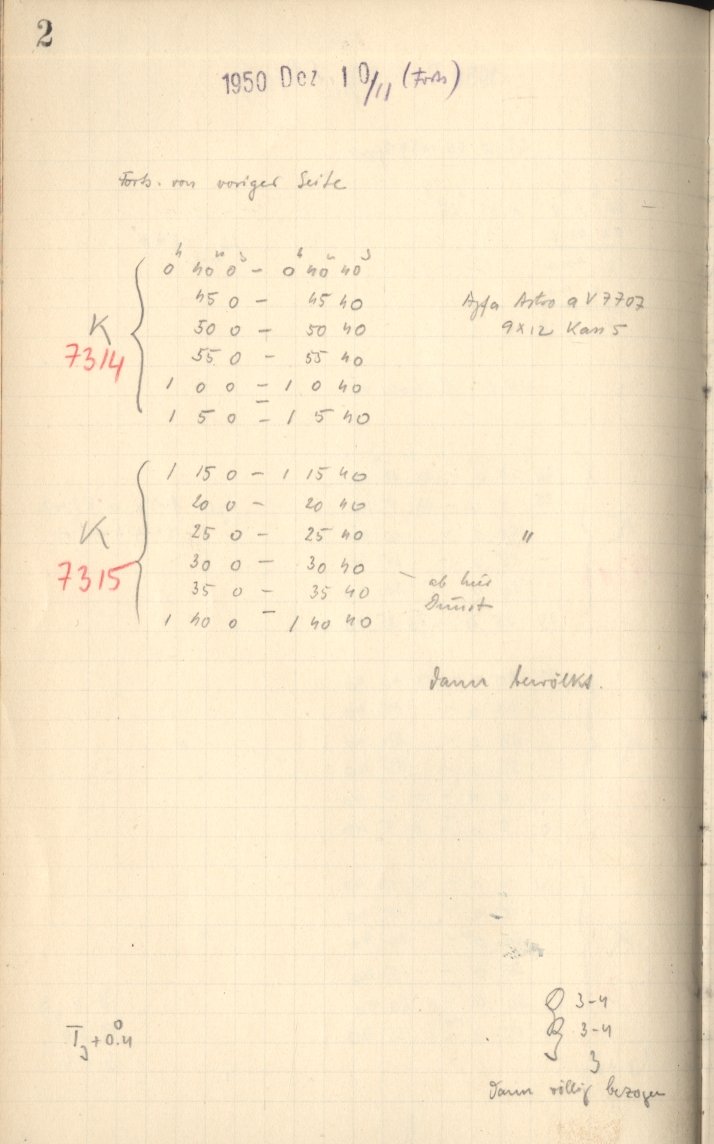 2
1950 Dez 10/11 (Forts)
Forts. von voriger Seite
0h 40m 0s - 0h 40m 40s
45 0 - 45 40
50 0 - 50 40
55 0 - 55 40
1 0 0 - 1 0 40
1 5 0 - 1 5 40
K
7314
Agfa Astro a V7707
9x12 Kass 5
1 15 0 - 1 15 40
20 0 - 20 40
25 0 - 25 40
30 0 - 30 40
35 0 - 35 40
1 40 0 - 1 40 40
K
7315
"
- ab hier
Dunst
dann bewölkt.
T3 + 0.°4
3-4
3-4
3
dann völlig bezogen